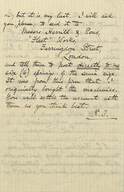 is), but it is my last. I will ask
you, please, to send it to
Messrs Herrill & Sons,
"Fleet" Works,
Farringdon Street,
London
and tell them to post directly to me
six (6) springs of the same size.
It was from this firm that I
originally bought the machine.
You will settle the account with
them as you think best.
R.T.